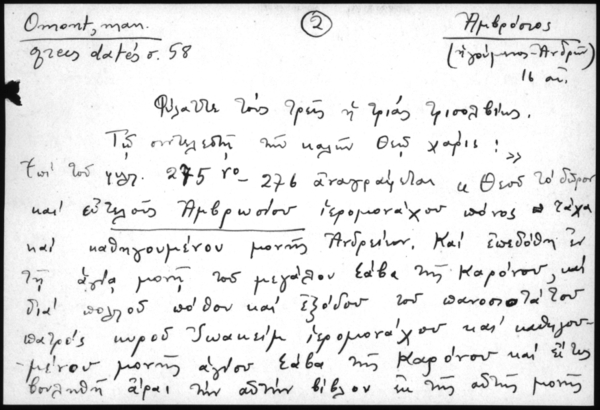 Omont, man. ② Ἀμβρόσιος
grecs datés σ. 58 (ἡγούμενος Ἀνδρῶ)
16 αἰ.
Φύλαττε τοὺς τρεῖς ἡ τριὰς τρισολβίως.
Τῷ συντελεστῇ τῶν καλῶν Θεῷ χάρις! »
Ἐπὶ τοῦ φυλ. 275 ro - 276 ἀναγράφεται « Θεοῦ τὸ δῶρον
καὶ εὐτελοῦς Ἀμβρωσίου ἱερομονάχου πόνος τάχα
καὶ καθηγουμένου μονῆς Ἀνδρείων. Καὶ ἐπεδόθη ἐν
τῇ ἁγίᾳ μονῇ τοῦ μεγάλου Σάβα τῆς Καρόνου, καὶ
διὰ πολλοῦ πόθου καὶ ἐξόδου τοῦ πανοσιοτάτου
πατρὸς κυροῦ Ἰωακεὶμ ἱερομονάχου καὶ καθηγου-
μένου μονῆς ἁγίου Σάβα τῆς Καρόνου καὶ εἴ τις
βουληθῇ ἆραι τὴν αὐτὴν βίβλον ἐκ τῆς αὐτῆς μονῆς